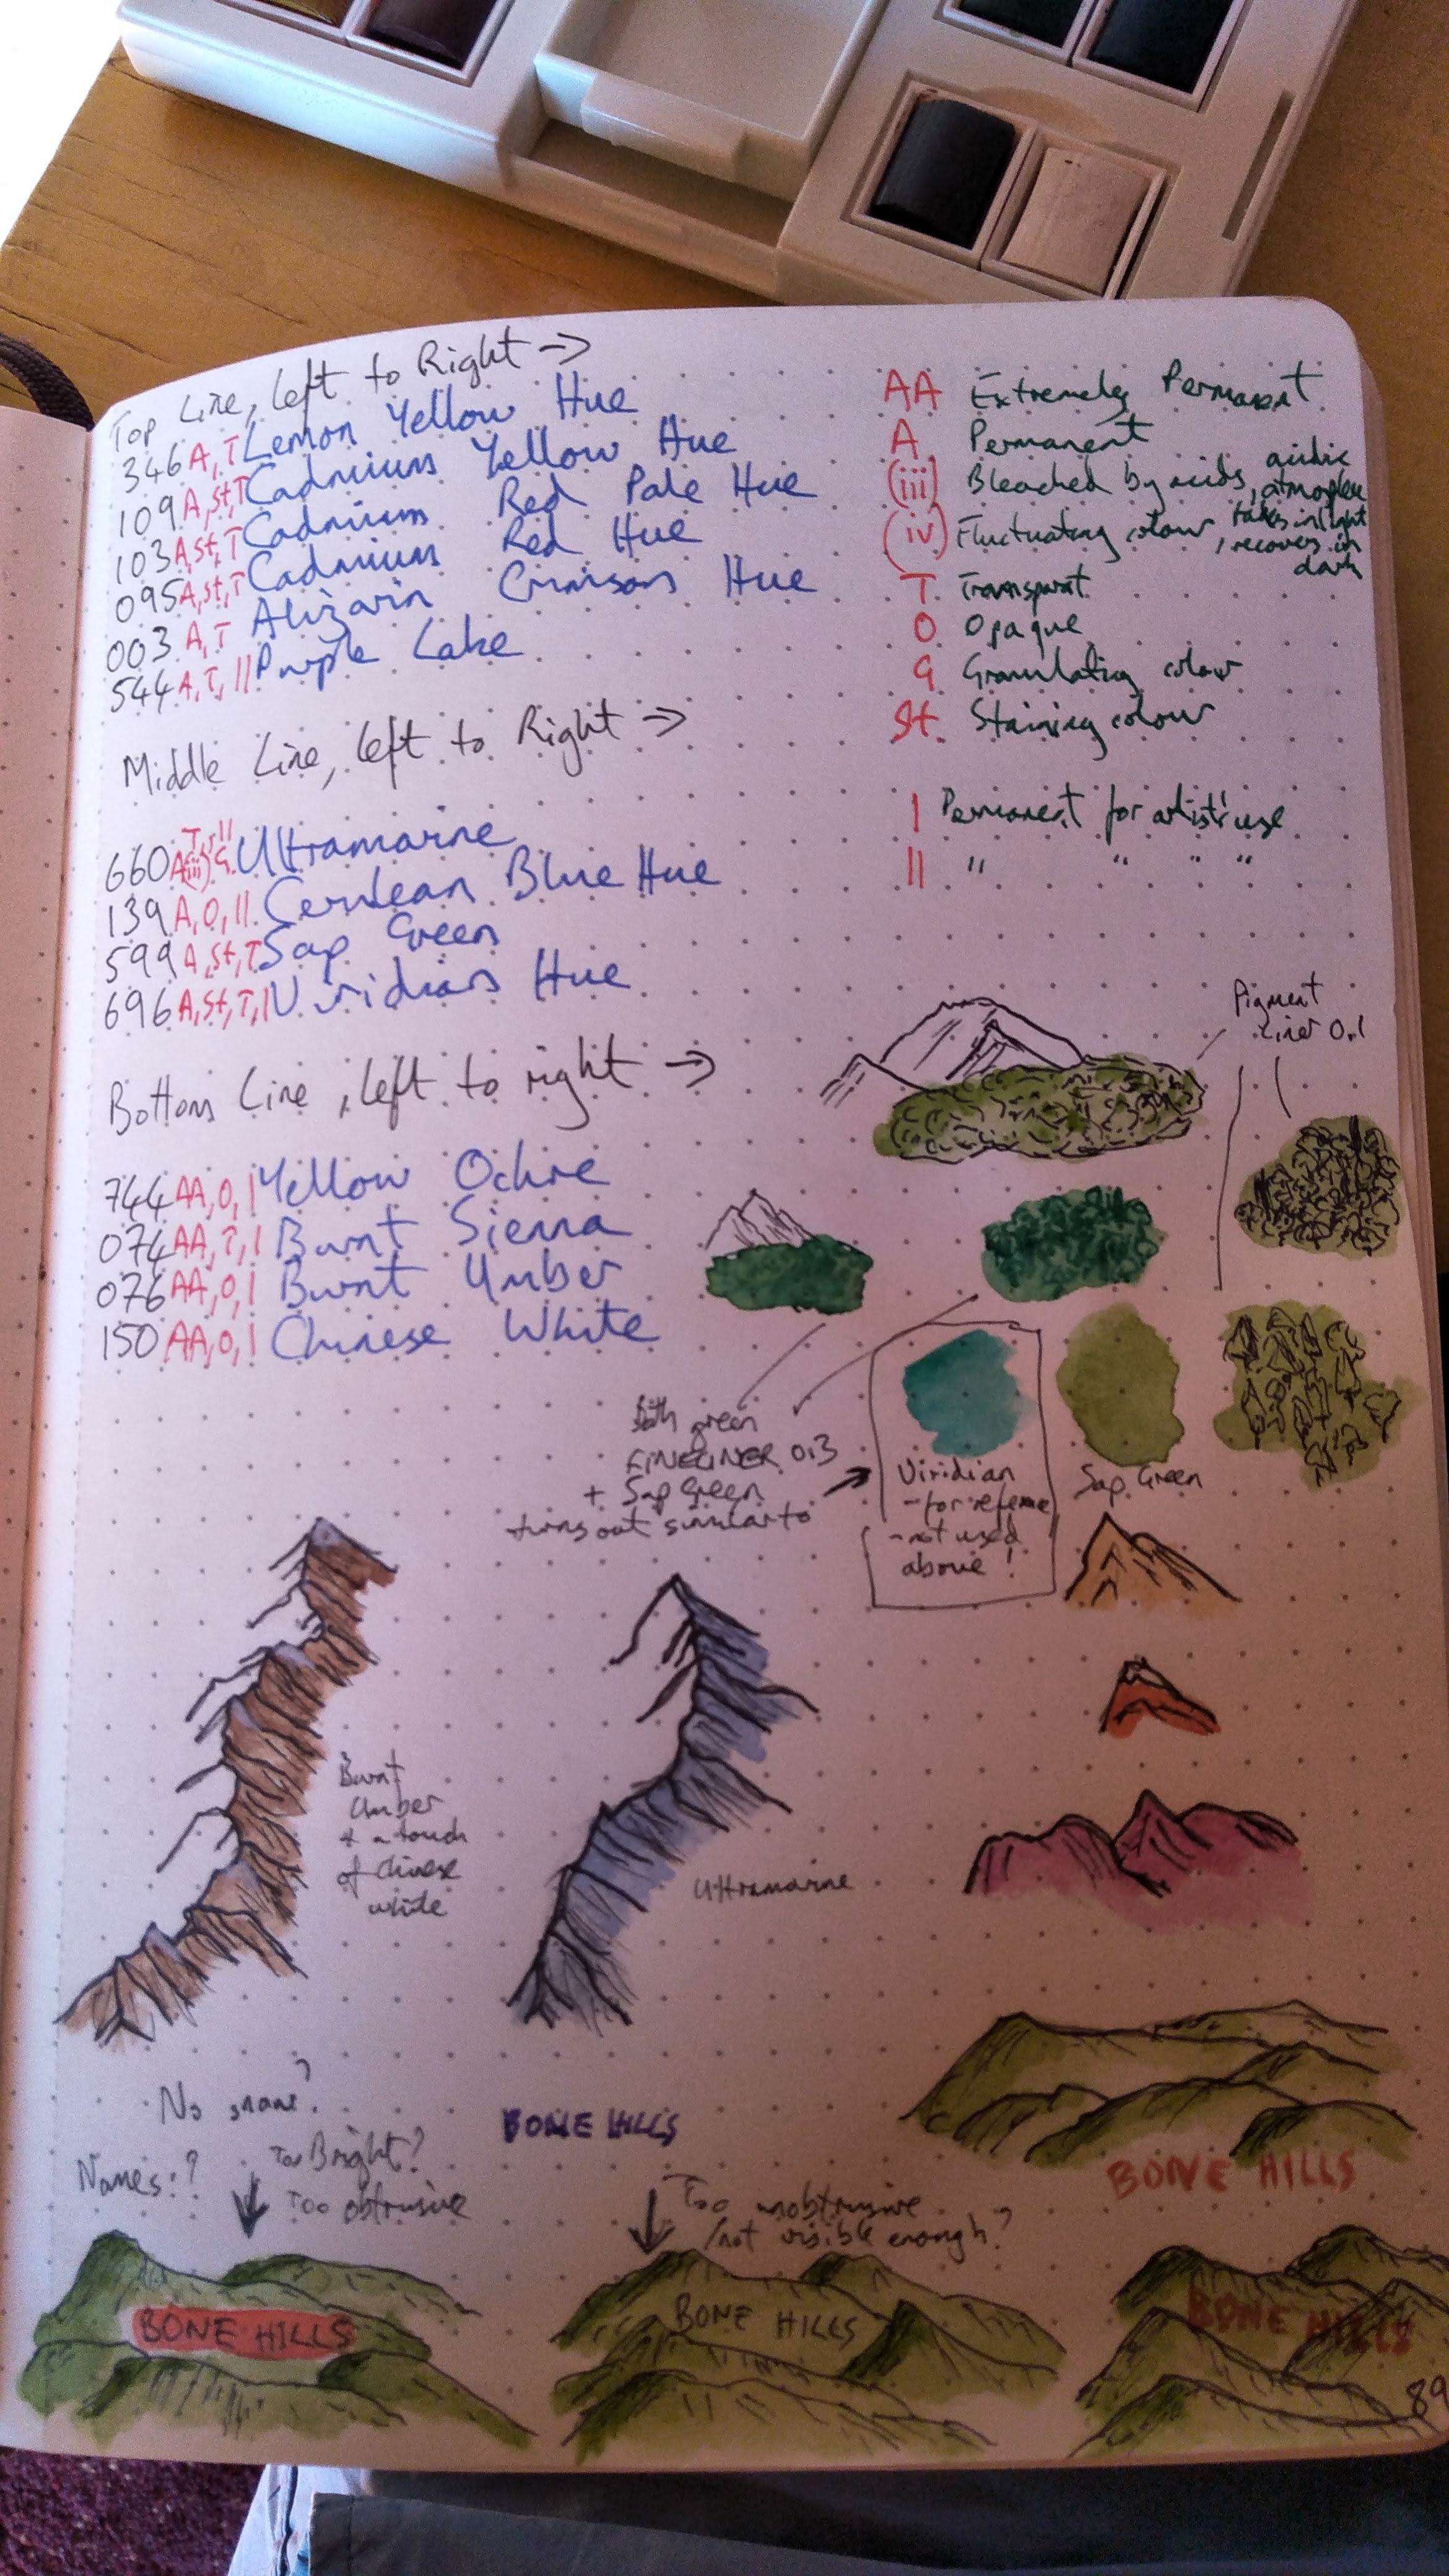 Top Line, Left to Right →
346 A, T Lemon Yellow Hue
109 A, St, T Cadmium Yellow Hue
103 A, St, T Cadmium Red Pale Hue
095 A, St, T Cadmium Red Hue
003 A, T Alizarin Crimson Hue
544 A, T, || Purple Lake
Middle Line, left to Right →
660 A (iii) G T, || Ultramarine
139 A, O, || Cerulean Blue Hue
599 A, St, T Sap Green
696 A, St, T, | Viridian Hue
Bottom Line, left to right →
744 AA, O, | Yellow Ochre
074 AA, T, | Burnt Sienna
076 AA, O, | Burnt Umber
150 AA, O, | Chinese White
AA Extremely Permanent
A Permanent
(iii) Bleached by acids, acidic
atmosphere
(iv) Fluctuating colour, fades in light
, recovers in
dark
T Transparent
O Opaque
G Granulating colour
St Staining colour
| Permanent for artists' use
|| " " " "
Pigment
Liner 0.1
Both green
FINELINER 0.3
+ Sap Green
turns out similar to
Viridian
- for reference
- not used
above!
Sap Green
Burnt
Umber
+ a touch
of Chinese
white
Ultramarine
No
Names:?
Too Bright?
Too obtrusive
BONE HILLS
Too unobtrusive
/not visible enough?
BONE HILLS
BONE HILLS
BONE HILLS
BONE HILLS
89